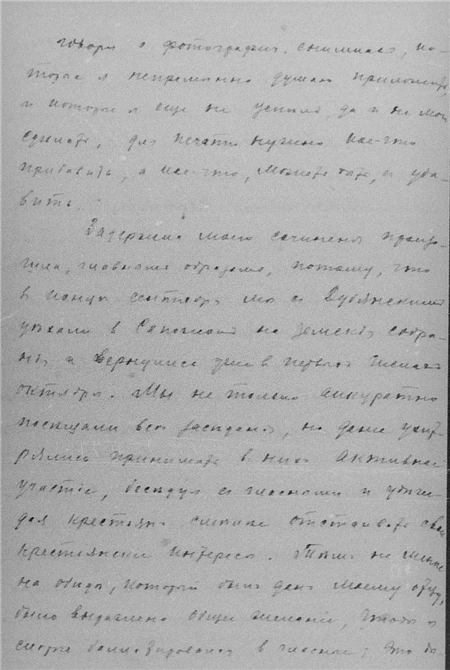 говоря о фотографиях, снимках, ко-
торые я непременно думаю приложить,
и которые я еще не успел, да и не мог
сделать, для печати нужно кое-что
прибавить, а кое-что, может быть, и уба-
вить.
Задержка моего сочинения произо-
шла, главным образом, потому, что
в конце сентября мы с Дубянским
уехали в на земское собра-
ние и вернулись уже в первых числах
октября. Мы не только аккуратно
посещали все заседания, но даже
принимать в них активное
участие, беседуя с гласными и убеж-
дая крестьян смелее отстаивать свои
крестьянские интересы. Тем не менее
на обеде, который был дан моему отцу,
было выражено общее желание, чтобы я
скорее баллотировался в гласные; это бы-